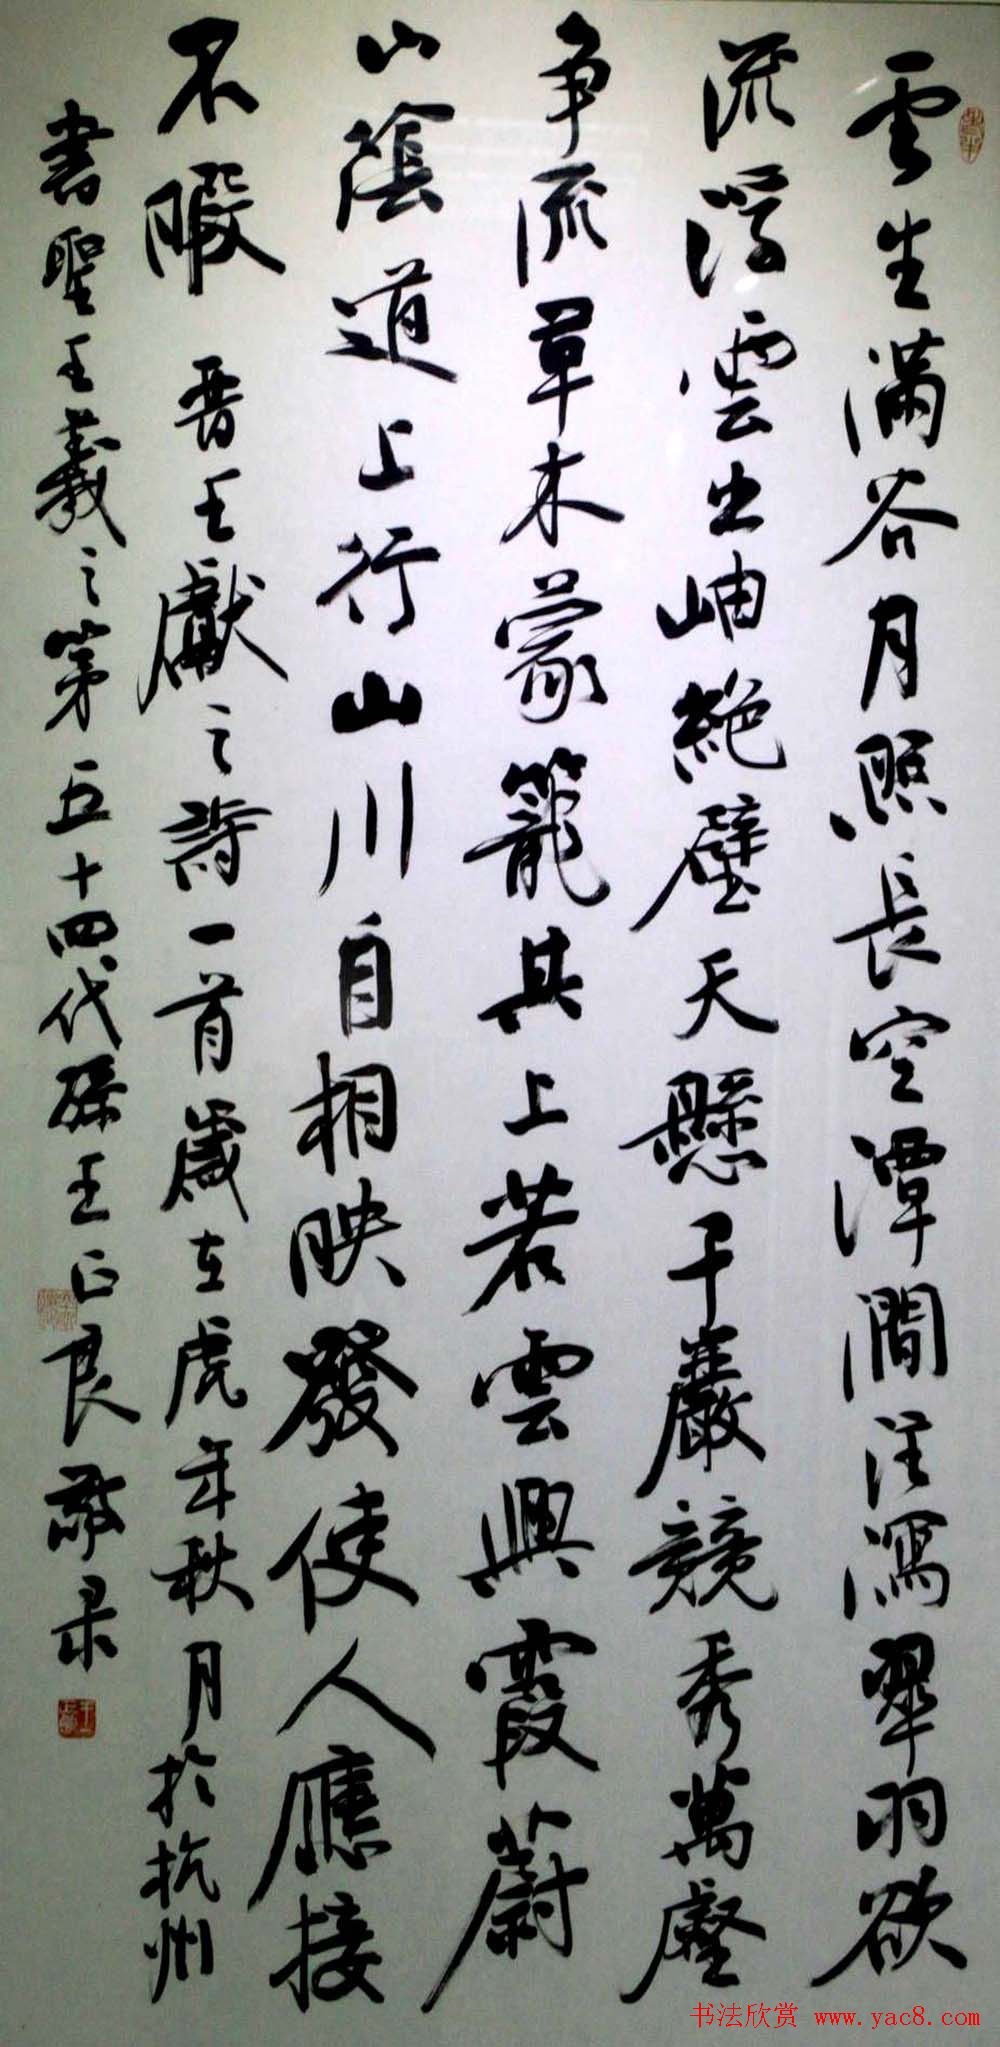 雲生满谷月照長空潭澗注瀉翠羽欲
流浮雲出岫絶壁天懸千巖競秀萬壑
争流草木蒙籠其上若雲興霞蔚
山蔭道上行山川自相映發使人應接
不暇 晋王獻之詩一首歲在虎年秋月於杭州
書聖王羲之第五十四代孫王正良敬录
书法欣赏 www.yac8.com